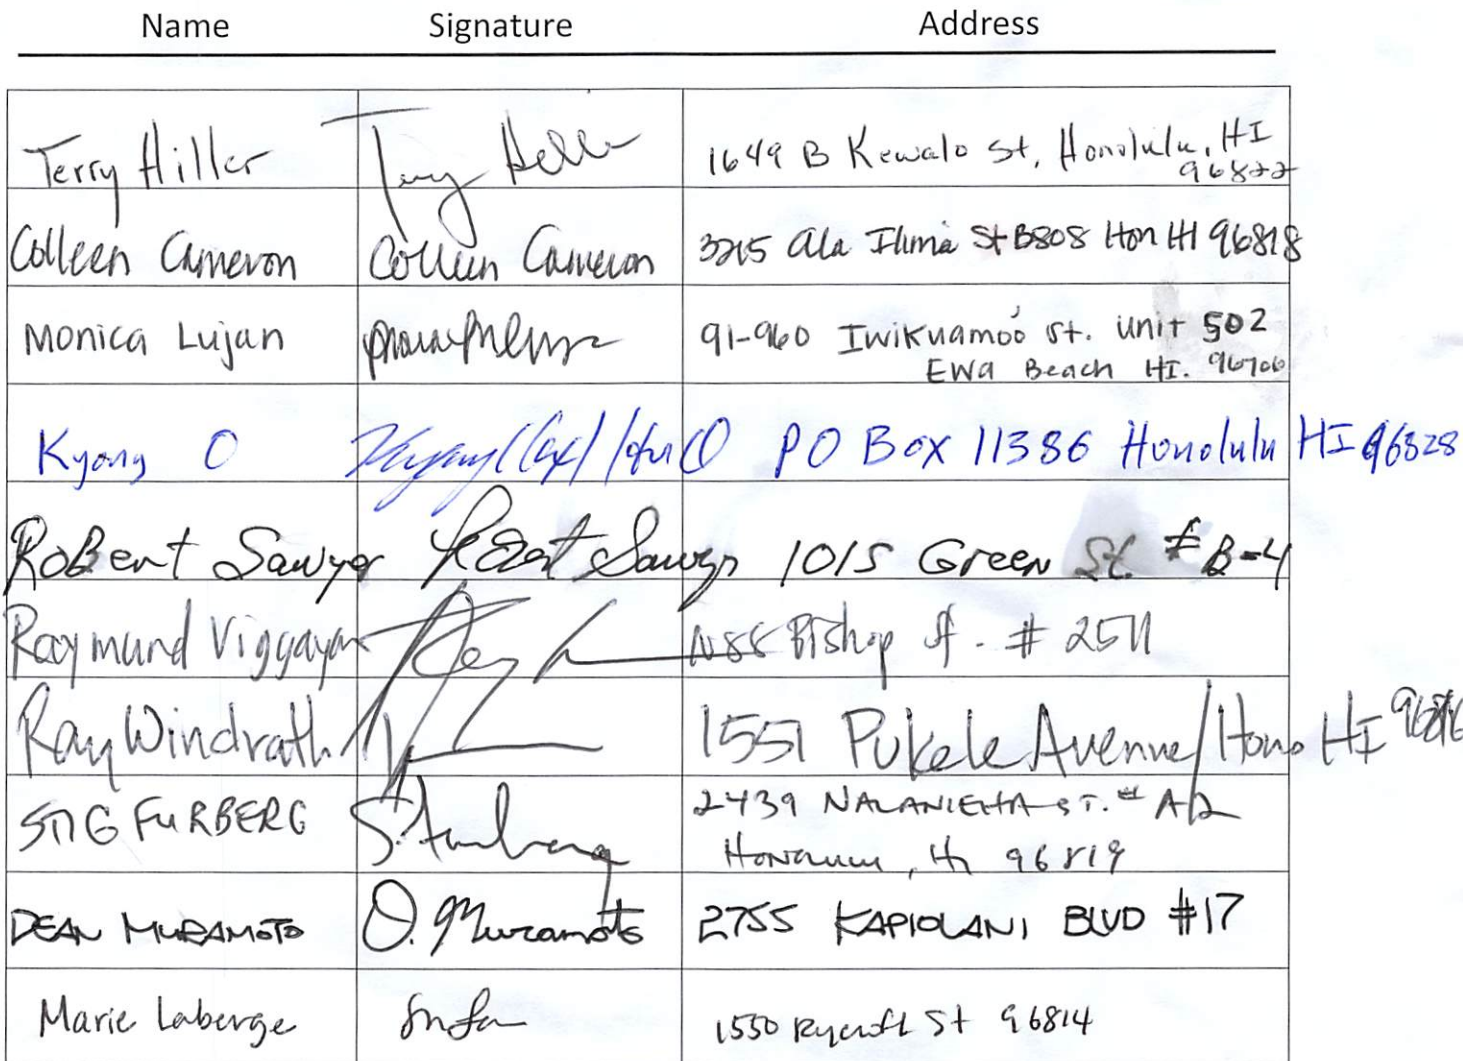 Name Signature Address
Terry Hiller Terry Hiller 1649 B Kewalo St, Honolulu, HI
96822
Colleen Cameron Colleen Cameron 3215 Ala Ilima St B808 Hon HI 96818
Monica Lujan 91-960 Iwikuamoo St. unit 502
EWA Beach HI. 96706
Kyong O PO Box 11386 Honolulu HI 96828
Robert Sawyer Robert Sawyer 1015 Green St. # B-4
Raymund Viggayan 1188 Bishop St. # 2511
Ray Windrath 1551 Pukele Avenue/Hono HI 96816
STIG FURBERG S. Furberg 2439 ST. # A12
Honolulu, HI 96819
DEAN MURAMOTO D. Muramoto 2755 KAPIOLANI BLVD #17
Marie Laberge 1550 Rycroft St 96814